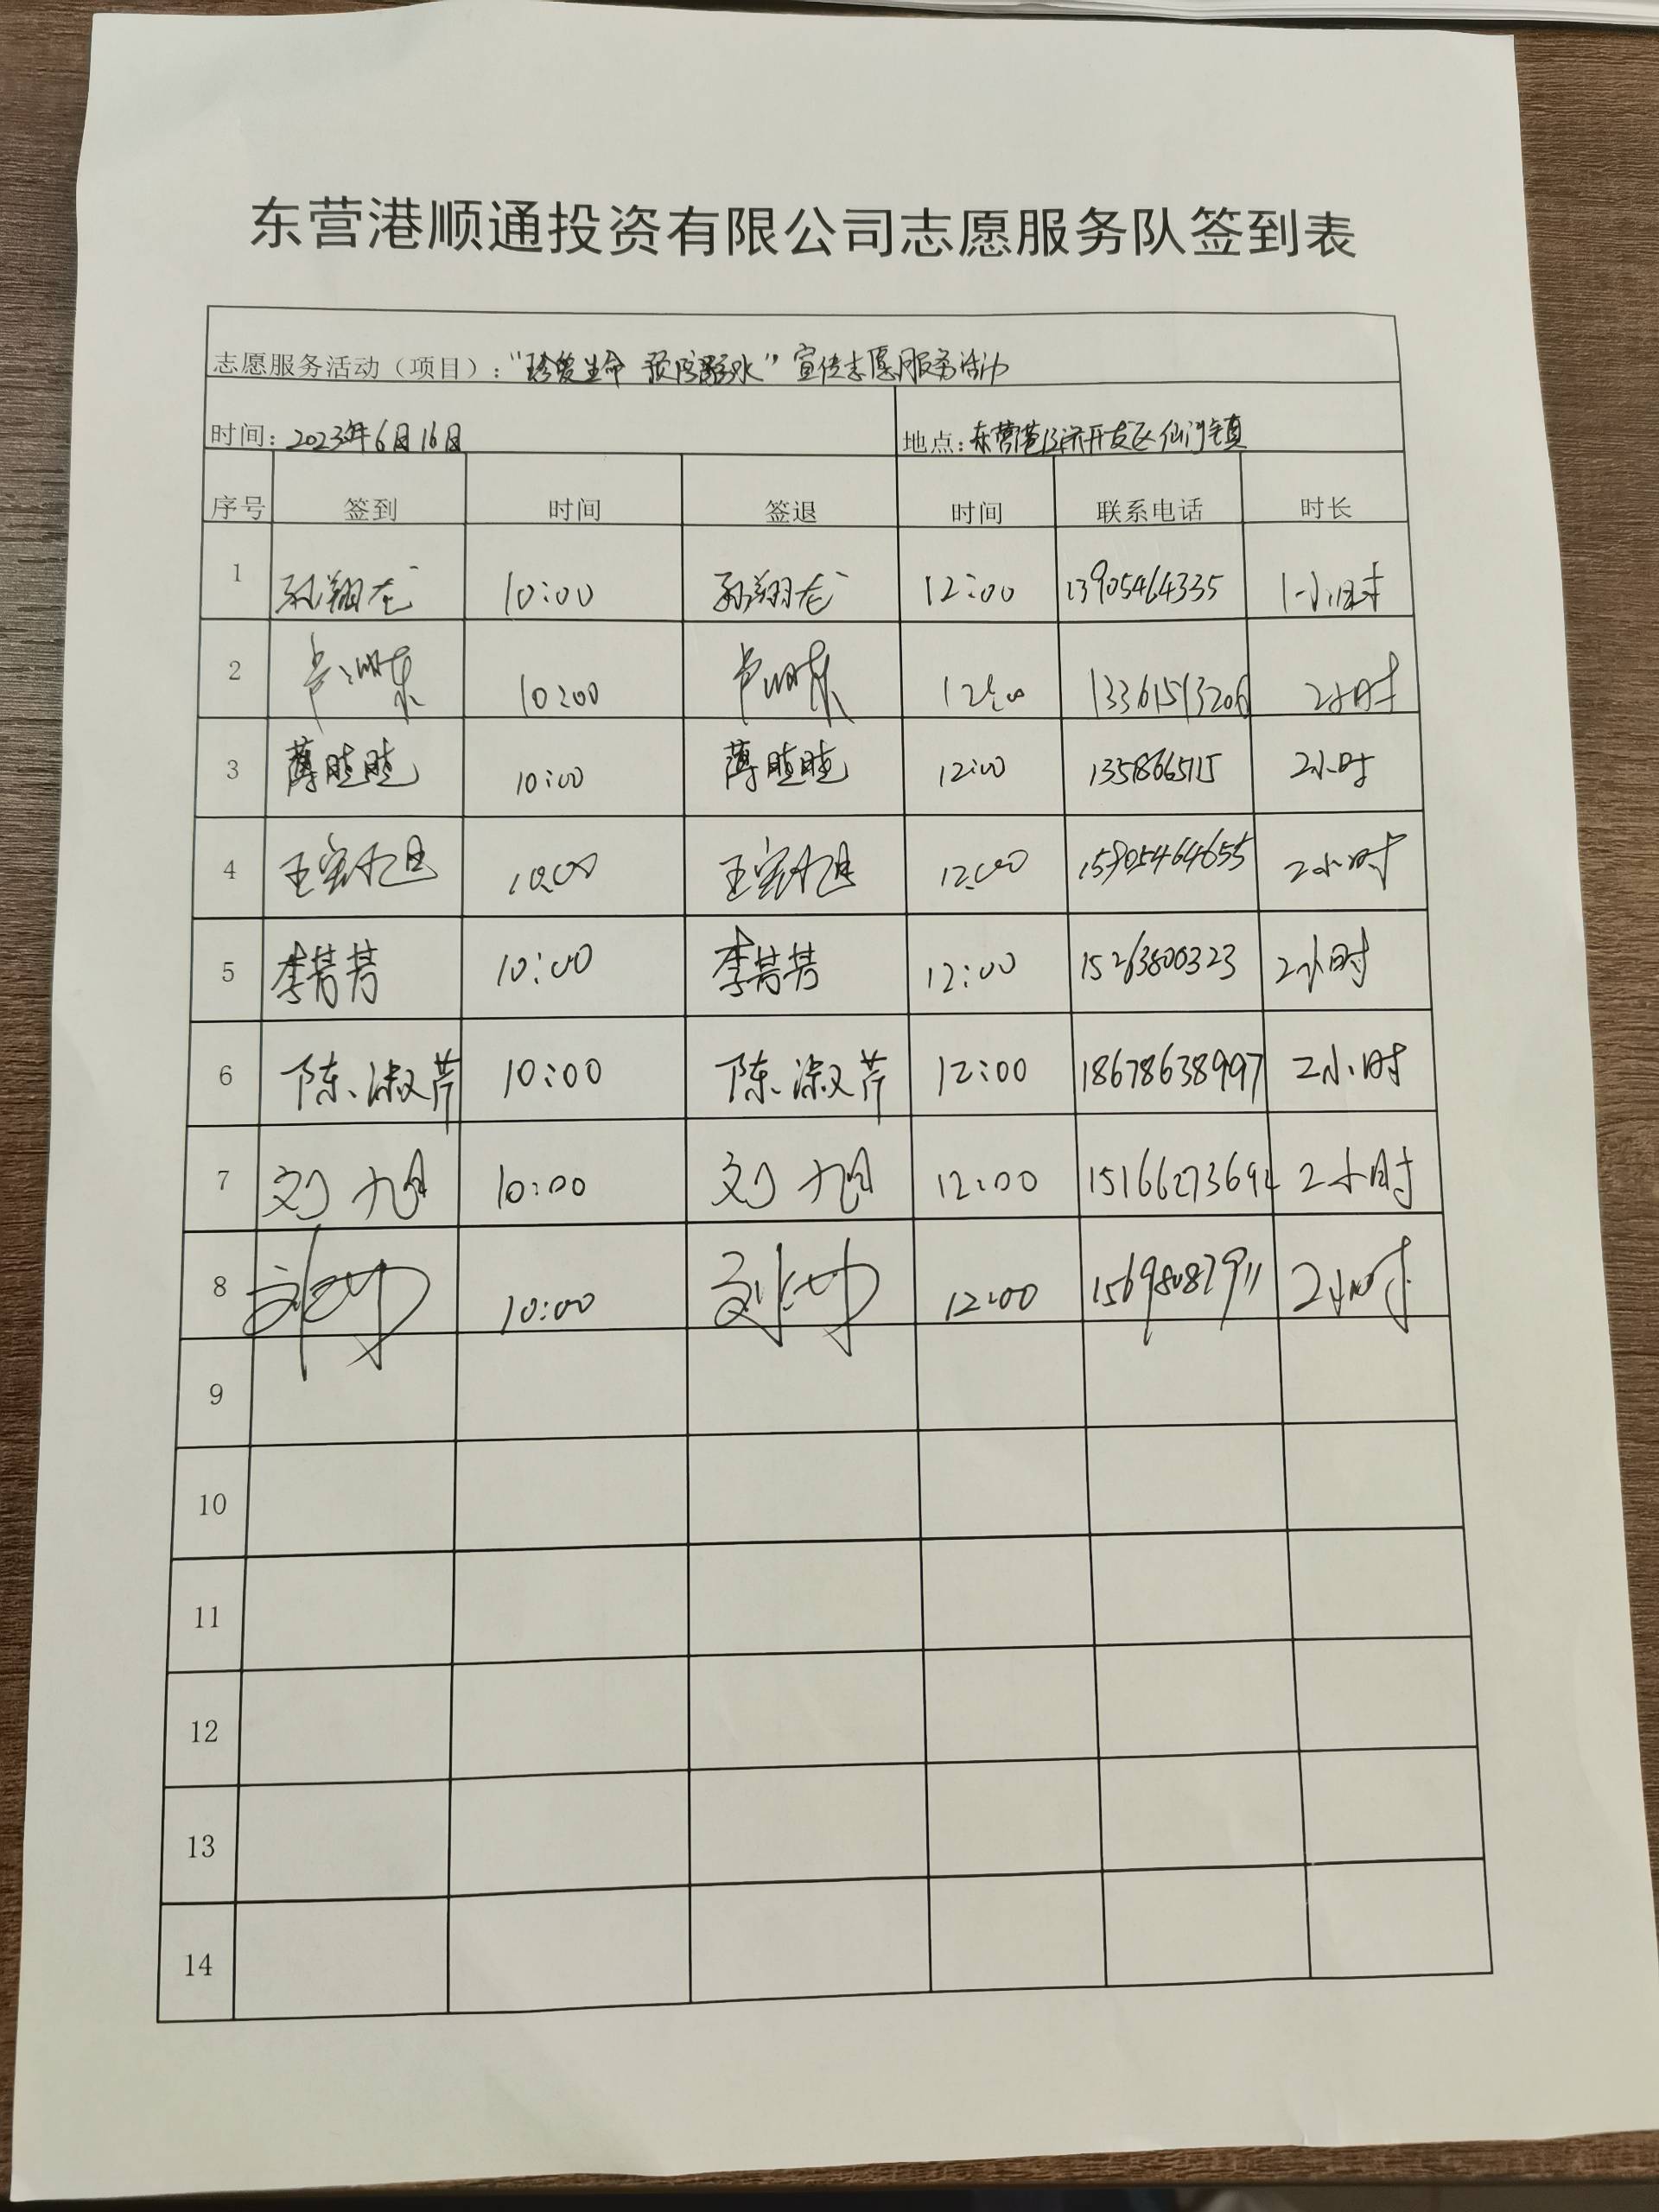 东营港顺通投资有限公司志愿服务队签到表
志愿服务活动（项目）：“珍爱生命 预防溺水”宣传志愿服务活动
时间：2023年6月16日 地点：东营港经济开发区仙河镇
序号 签到 时间 签退 时间 联系电话 时长
1 孙翔龙 10:00 孙翔龙 12:00 13905464335 1小时
2 10:00 12:00 13361513206 2小时
3 薄晓晓 10:00 薄晓晓 12:00 2小时
4 王宝旭 10:00 王宝旭 12:00 15905464655 2小时
5 李芳芳 10:00 李芳芳 12:00 15263800323 2小时
6 陈淑芹 10:00 陈淑芹 12:00 18678638997 2小时
7 刘旭 10:00 刘旭 12:00 2小时
8 10:00 12:00 2小时
9
10
11
12
13
14